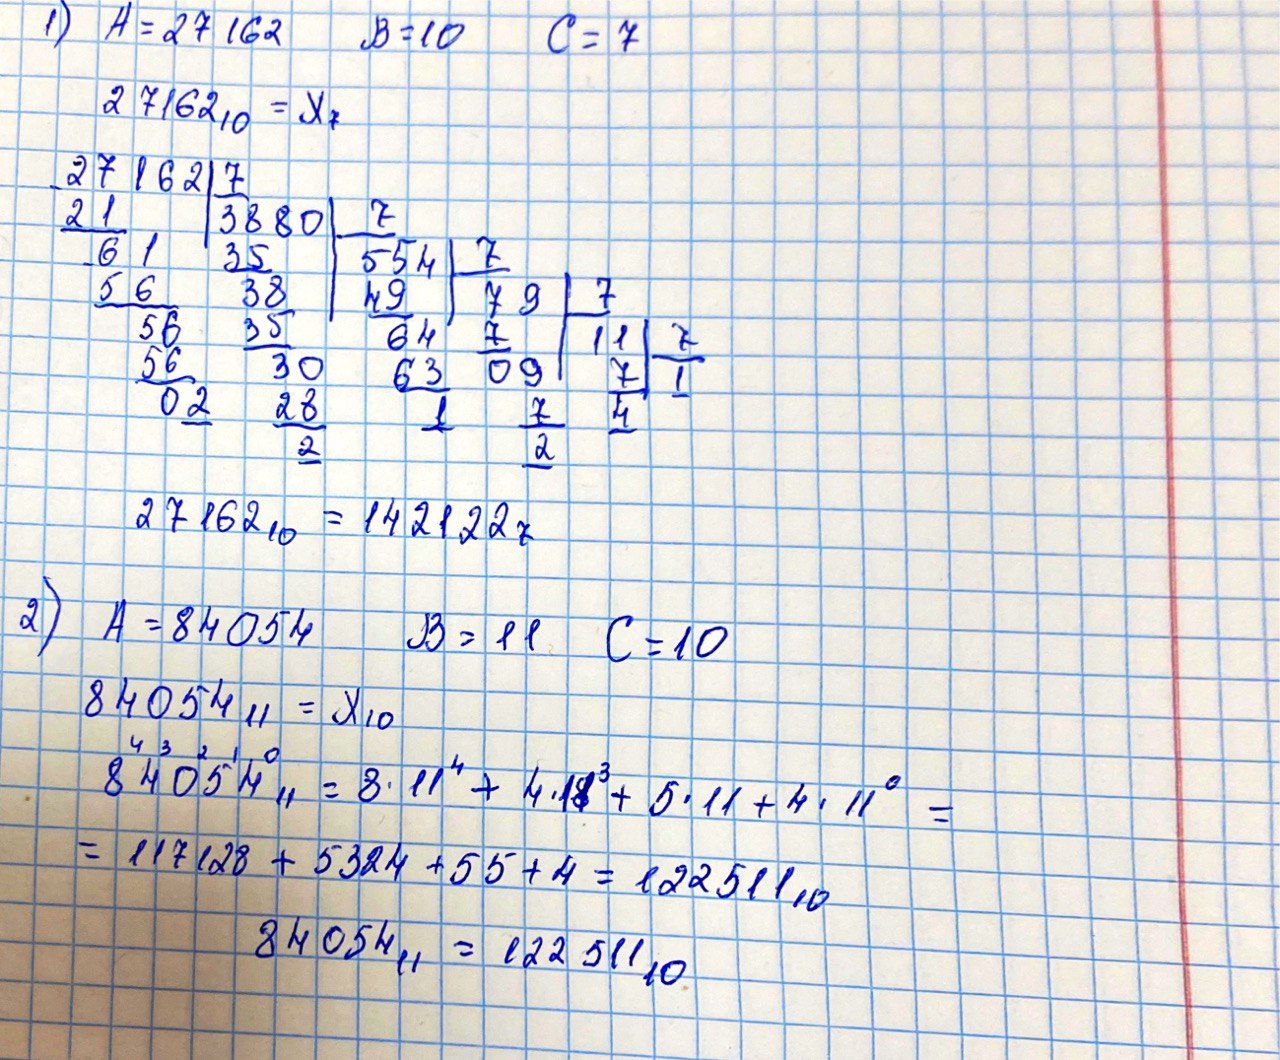 1) A = 27162 B = 10 C = 7
27162₁₀ = X₇
27162 | 7
21 3880 | 7
61 35 554 | 7
56 38 49 79 | 7
56 35 64 7 11 | 7
56 30 63 09 7 1
02 28 1 7 4
2 2
27162₁₀ = 142122₇
2) A = 84054 B = 11 C = 10
84054₁₁ = X₁₀
4 3 2 1 0
84054₁₁ = 8·11⁴ + 4·11³ + 5·11 + 4·11⁰ =
= 117128 + 5324 + 55 + 4 = 122511₁₀
84054₁₁ = 122511₁₀